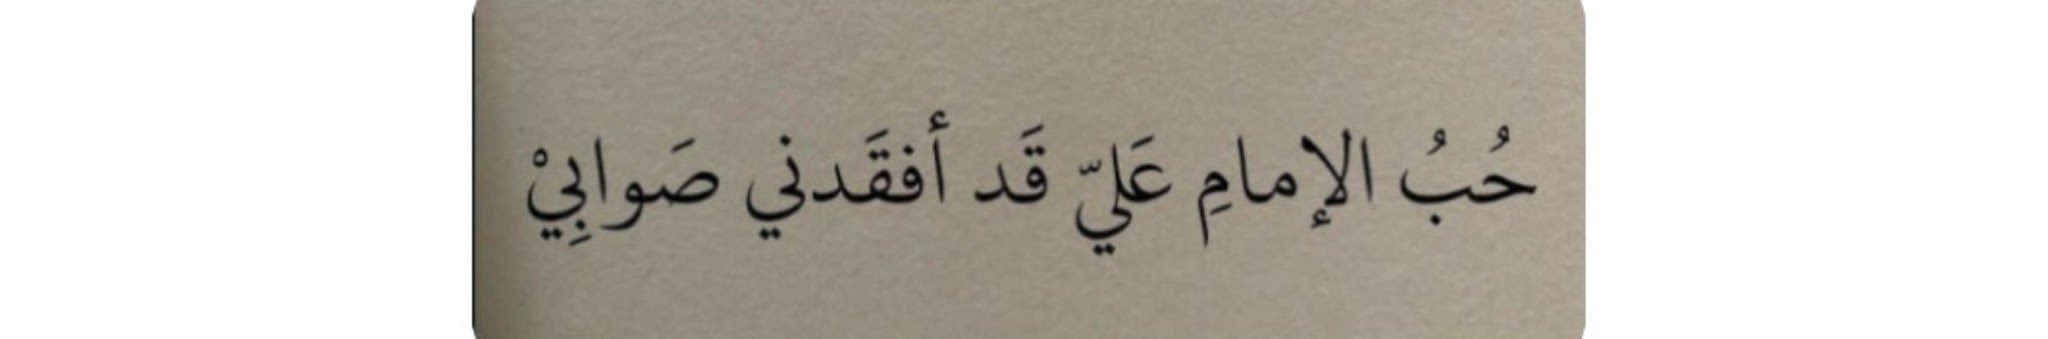 حُبُ الإمامِ عَليّ قَد أفقَدني صَوابِيْ